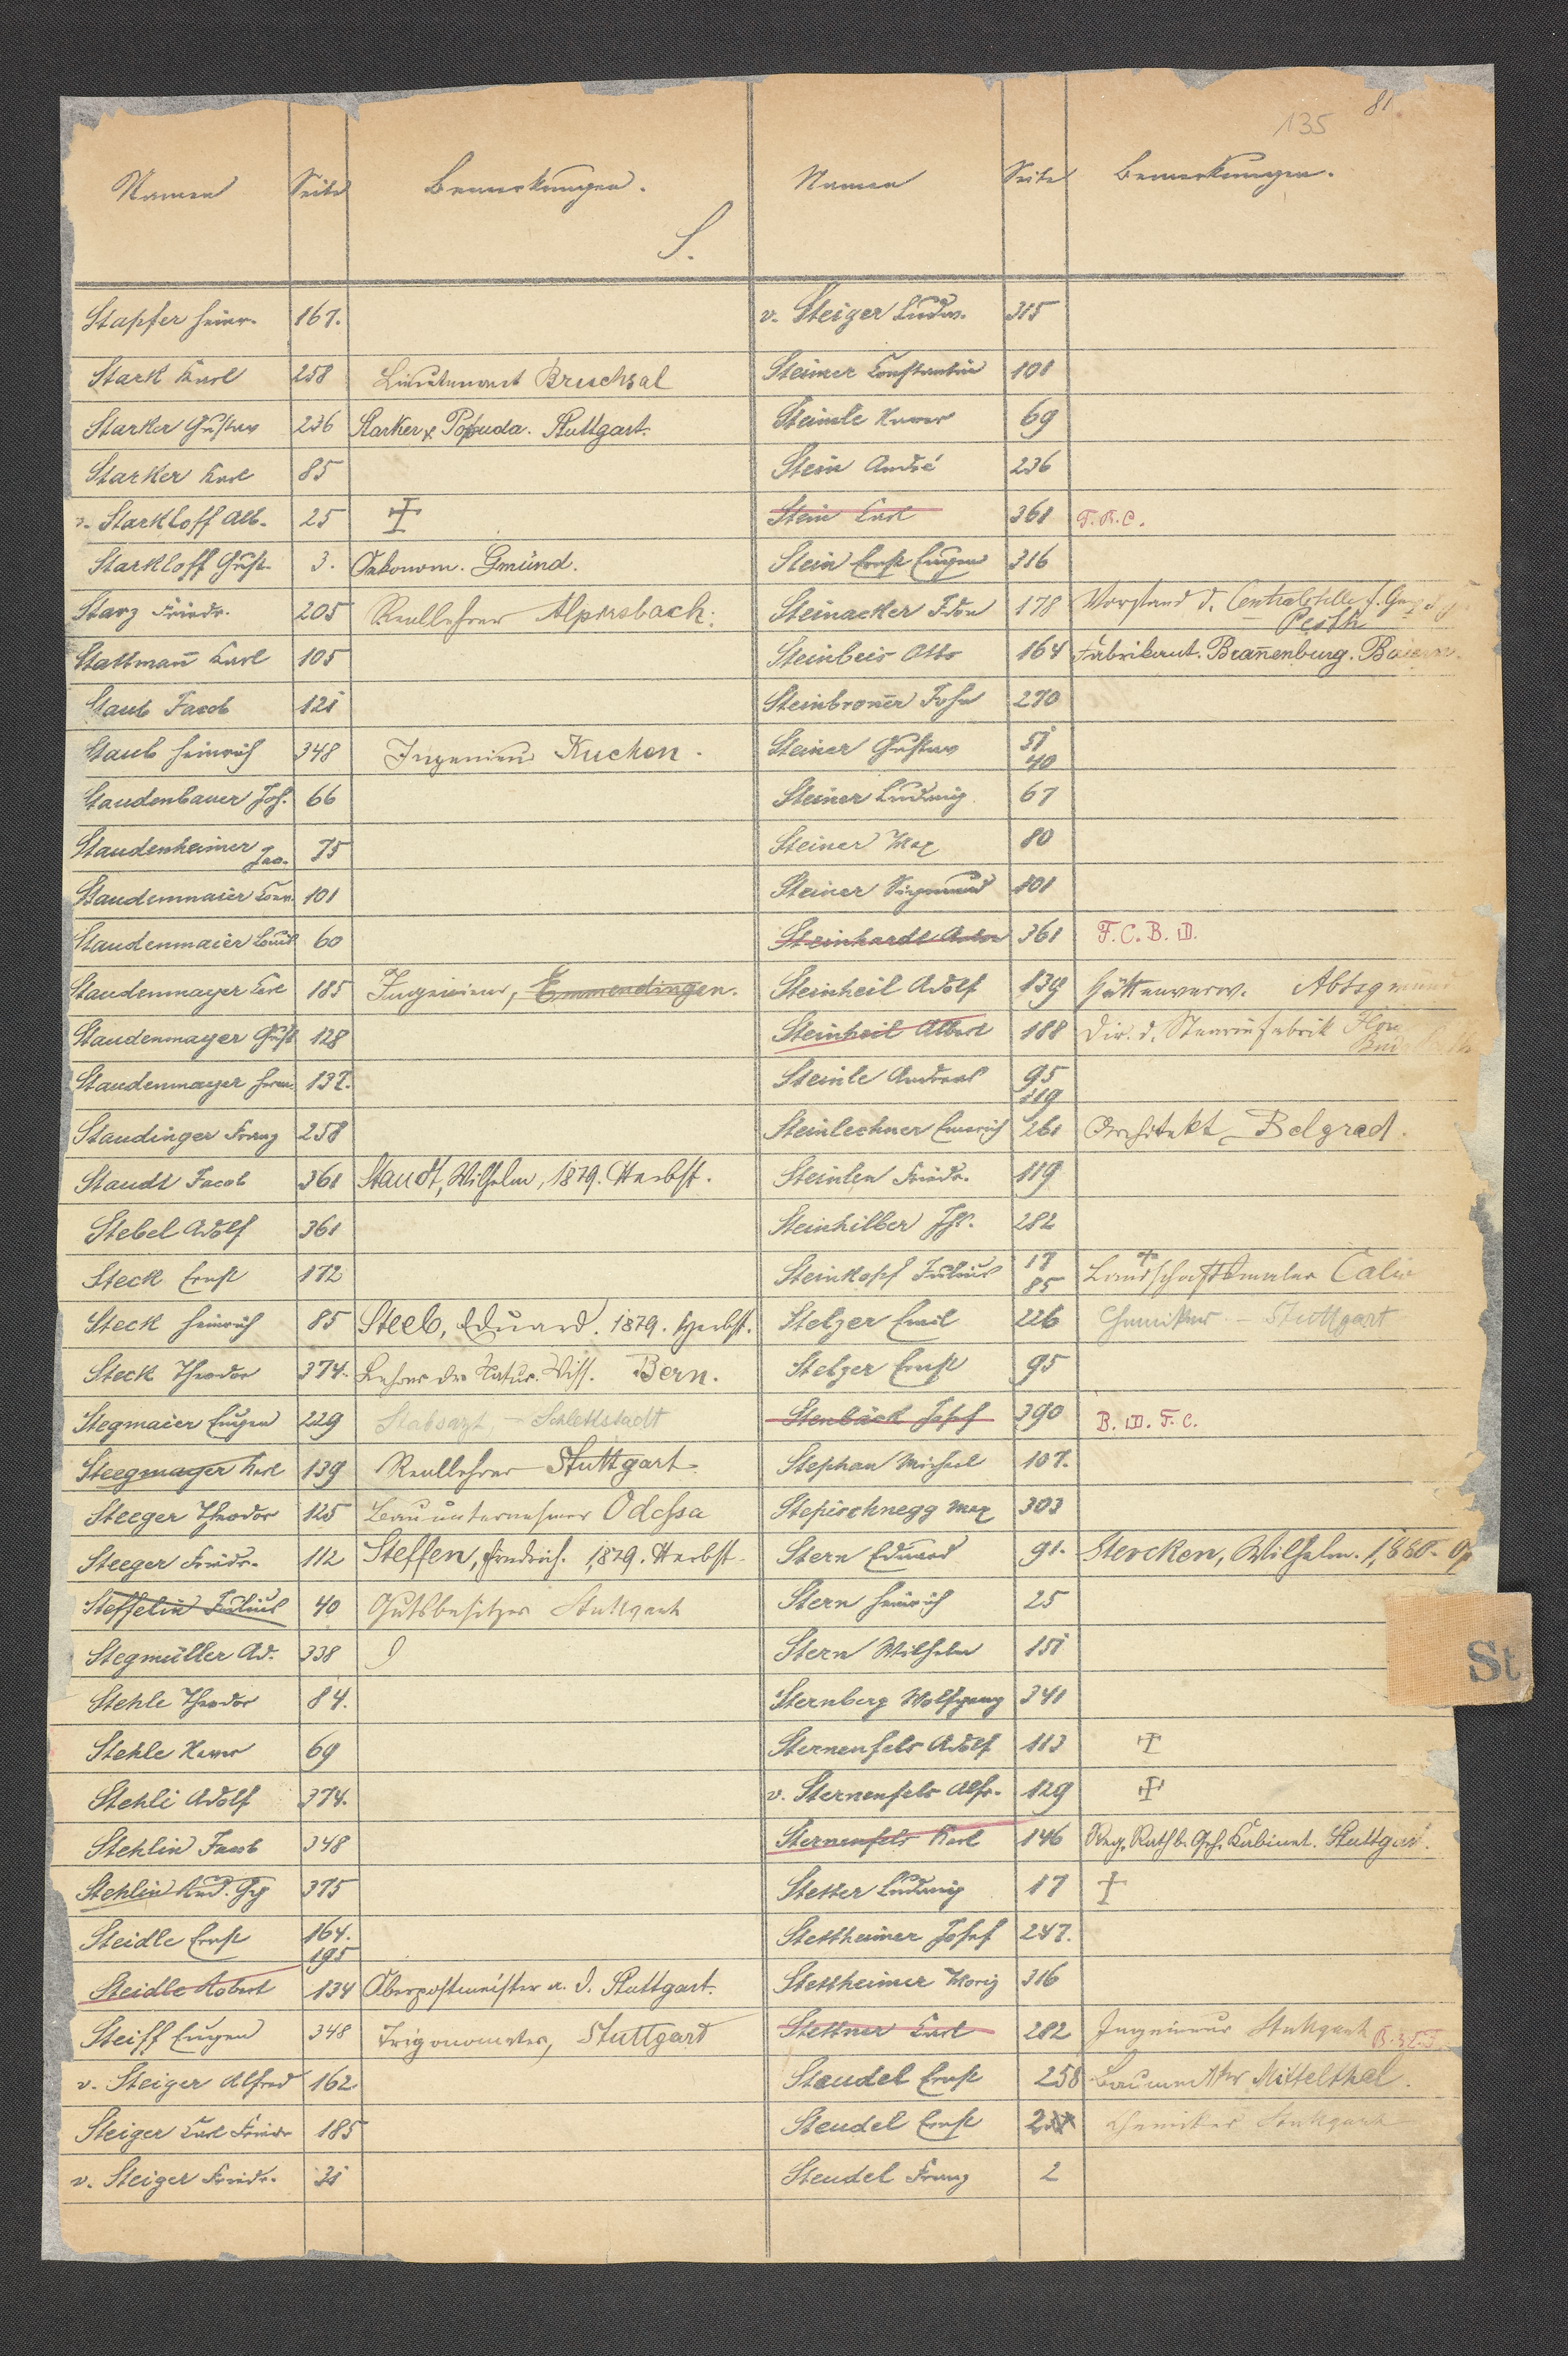 81
135
Namen Seite Bemerkungen. Namen Seite Bemerkungen.
S.
Stapfer Heinr. 167.
Stark Karl 258 Lieutenant Bruchsal
Starker Gustav 236 Starker & Pobuda. Stuttgart.
Starker Karl 85
v. Starkloff Alb. 25 †
Starkloff Gust. 3. Oekonom. Gmünd.
Starz Friedr. 205 Reallehrer Alpirsbach.
Stattmañ Karl 105
Staub Jacob 121
Staub Heinrich 348 Ingenieur Kuchen.
Staudenbauer Jos. 66
Staudenheimer Jac. 75
Staudenmaier Conr. 101
Staudenmaier Louis 60
Staudenmayer Carl 185 Ingenieur, Emmendingen.
Staudenmayer Gust 128
Staudenmayer Herm. 137.
Staudinger Franz 258
Staudt Jacob 361 Staudt, Wilhelm, 1879. Herbst.
Stebel Adolf 361
Steck Ernst 172
Steck Heinrich 85 Steeb, Eduard. 1879. Herbst.
Steck Theodor 374. Lehrer der Natur. Wiss. Bern.
Stegmaier Eugen 229 Stabsarzt – Schlettstadt
Steegmayer Karl 139 Reallehrer Stuttgart
Steeger Theodor 125 Bauunternehmer Odessa
Steeger Friedr. 112 Steffen, Friedrich. 1879. Herbst.
Steffelin Julius 40 Gutsbesitzer Stuttgart
Stegmüller Ad. 338
Stehle Theodor 84.
Stehle Xaver 69
Stehli Adolf 374.
Stehlin Jacob 348
Stehlin Rud. Gg 375
Steidle Ernst 164.
195
Steidle Robert 134 Oberpostmeister a. D. Stuttgart.
Steiff Eugen 348 Trigonometer, Stuttgart
v. Steiger Alfred 162
Steiger Carl Friedr 185
v. Steiger Friedr. 31
v. Steiger Ludw. 315
Steimer Constantin 101
Steimle Xaver 69
Stein André 236
Stein Carl 361 F.B.C.
Stein Ernst Eugen 316
Steinacker Edm 178 Vorstand d. Centralstelle f.
Pesth
Steinbeis Otto 164 Fabrikant. Brañenburg. Baiern.
Steinbroñer John 270
Steiner Gustav 51
40
Steiner Ludwig 67
Steiner Max 80
Steiner Sigmund 101
Steinhardt Anton 361 F.C.B.D.
Steinheil Adolf 139 Hüttenverw. Abtsgmünd
Steinheil Albert 188 Dir. d. Stearinfabrik Flora
Budapesth
Steinle Andreas 95
119
Steinlechner Emerich 261 Architekt Belgrad.
Steinlen Friedr. 119
Steinhilber Jhs. 282
Steinkopf Julius 17
85 Landschaftsmaler Calw
Stelzer Emil 226 Chemiker – Stuttgart
Stelzer Ernst 95
Stenbäck Josef 390 B.D.F.C.
Stephan Michael 107.
Stepischnegg Max 303
Stern Eduard 91. Stercken, Wilhelm. 1880.
Stern Heinrich 25
Stern Wilhelm 151
Sternberg Wolfgang 341
Sternenfels Adolf 113 †
v. Sternenfels Alfr. 129 †
Sternenfels Karl 146 Reg. Rath b. Geh. Kabinet. Stuttgart.
Stetter Ludwig 17 †
Stettheimer Josef 247.
Stettheimer Moriz 316
Stettner Carl 282 Ingenieur Stuttgart
Steudel Ernst 258 Baumstr Mittelthal.
Steudel Ernst Chemiker Stuttgart
Steudel Franz 2
St